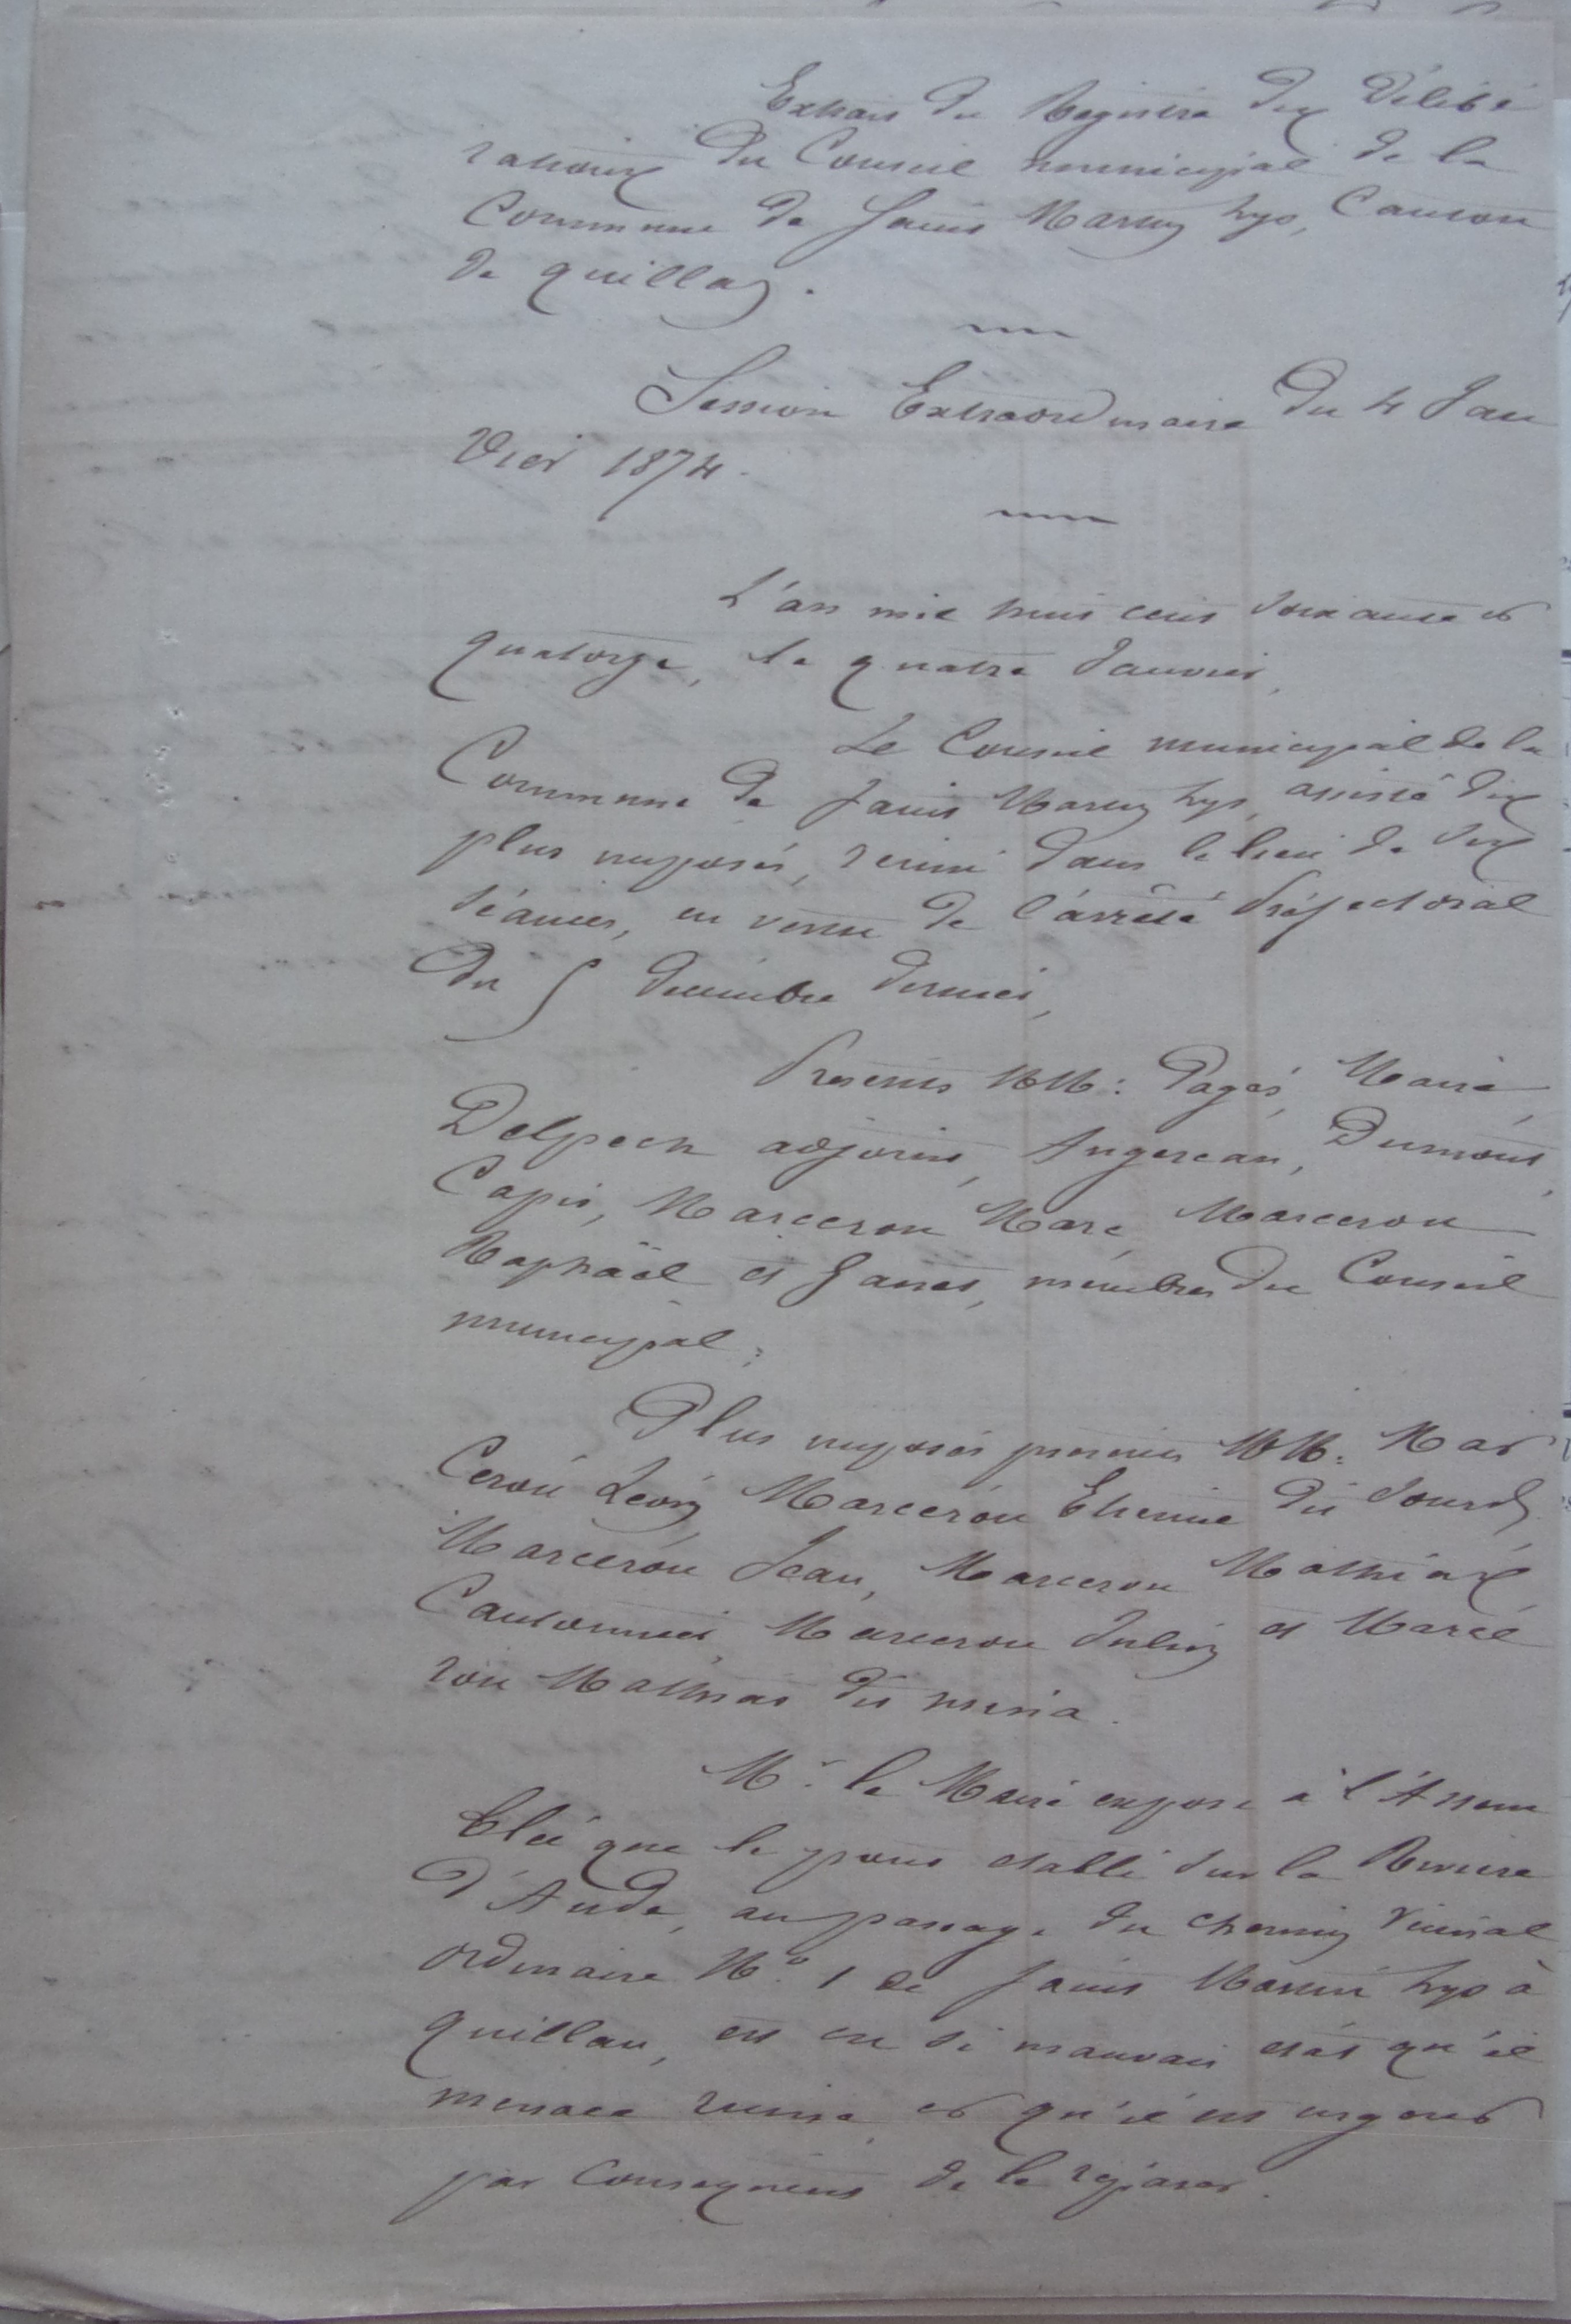 Extrait du Registre des Délibé
rations du Conseil municipal de la
Commune de Saint Martin Lys, Canton
de quillan.
Session Extraordinaire du 4 Jan
vier 1874.
L'an mil huit cent soixante et
quatorze, le quatre Janvier,
Le Conseil municipal de la
Commune de Saint Martin Lys, assisté des
plus imposés, réuni dans le lieu de ses
séances, en vertu de l'arrêté Préfectoral
du 5 décembre dernier,
Présents MM: Pagès, Maire,
Delpech adjoint, Augereau, Dumons,
Capis, Marceron Marc, Marceron
Raphaël et membres du Conseil
municipal;
Plus imposés présents MM: Mar
ceron Léon, Marceron Etienne dit Sourd,
Marceron Jean, Marceron Mathias
Cantonnier, Marceron Julien et Marce
ron Mathias dit
Mr. le Maire expose à l'Assem
blée que le pont établi sur la Rivière
d'Aude, au passage du chemin vicinal
ordinaire No. 1 de Saint Martin Lys à
quillan, est en si mauvais état qu'il
menace ruine, et qu'il est urgent
par conséquent de le réparer.